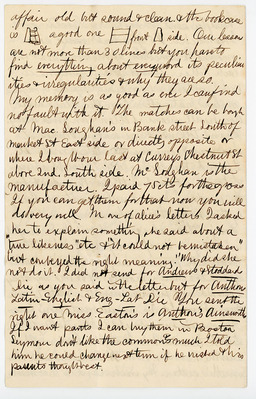 affair old but sound & clean & the bookcase
is a good one front side. Our lessons
are not more than 30 lines but you have to
find everything about every word its peculiar
ities & irregularities & why they are so.
My memory is as good as ever I can find
no fault with it. The matches can be bought
at Mac. in Bank street South of
market St East side or directly opposite or
when I bought our last at Curreys Chestnut St
above 2nd. South side. Mc is the
manufacturer. I paid 75cts for the gross
If you can get them for that now you will
do very well. In one of alice's letters I asked
her to explain something she said about a
"true likeness" etc & "it could not be mistaken"
but conveyed the right meaning. Why did she
not do it. I did not send for Andrews & Stoddard
Dic as you said in the letter but for Anthons
Latin-English & Eng-Lat Dic You sent the
right one Miss Eastons is Anthons Ainsworth
If I want pants I can buy them in
Seymour don't like the common much I told
him he could change next term if he wished & his
parents thought best.